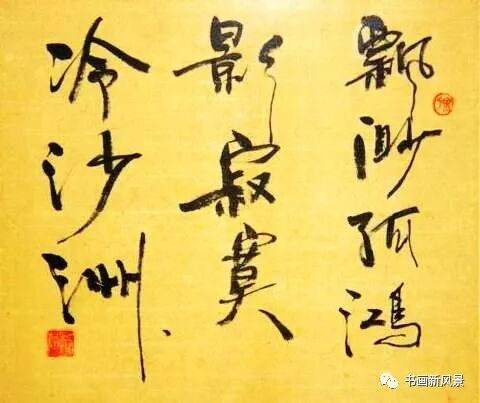 飄渺孤鴻
影寂寞
冷沙洲
书画新风景